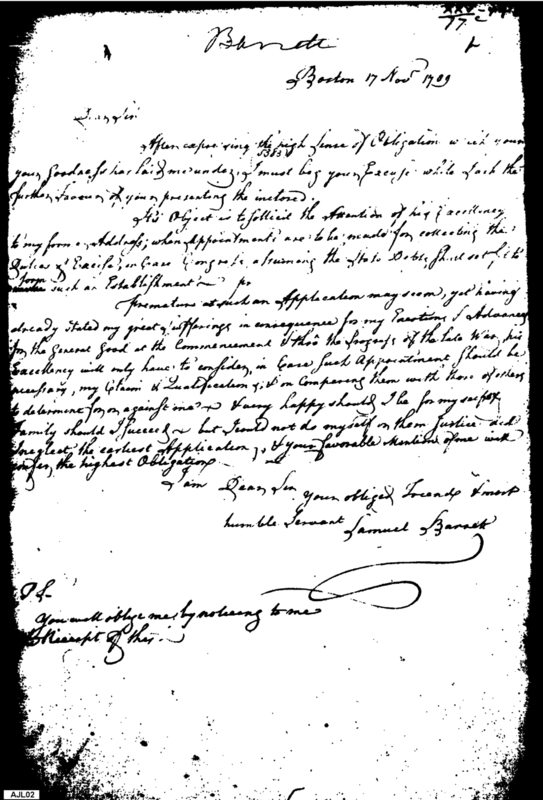 Barrett
Boston 17 Nov.r 1789
Dear Sir
After expressing the high Sense of Obligation which your
your Goodness has laid me under, I must beg your Excuse while I ask the
further favour of your presenting the inclosed.
Its Object is to sollicit the Attention of his Excellency
to my former Address, when Appointments are to be made for collecting the
Duties of Excise, in Case Congress assuming the State Debts, should set
form such an Establishment
Premature as such an Application may seem, yet having
already stated my great sufferings in consequence for my Exertions & Advances
for the General Good at the Commencement & thro the progress of the late War, his
Excellency will only have to consider, in Case such Appointment should be
necessary, my Claim & Qualification, & on Comparing them with those of others
to determine for or against me & very happy should I be for my sake &
Family should I succeed but I could not do myself or them Justice did
I neglect the earliest Application, & your favorable Mention of me will
confer the highest Obligation
I am Dear Sir your obliged Friend & most
humble Servant Samuel Barrett
P S
You will oblige me by noticing to me
Receipt of this.
AJL02